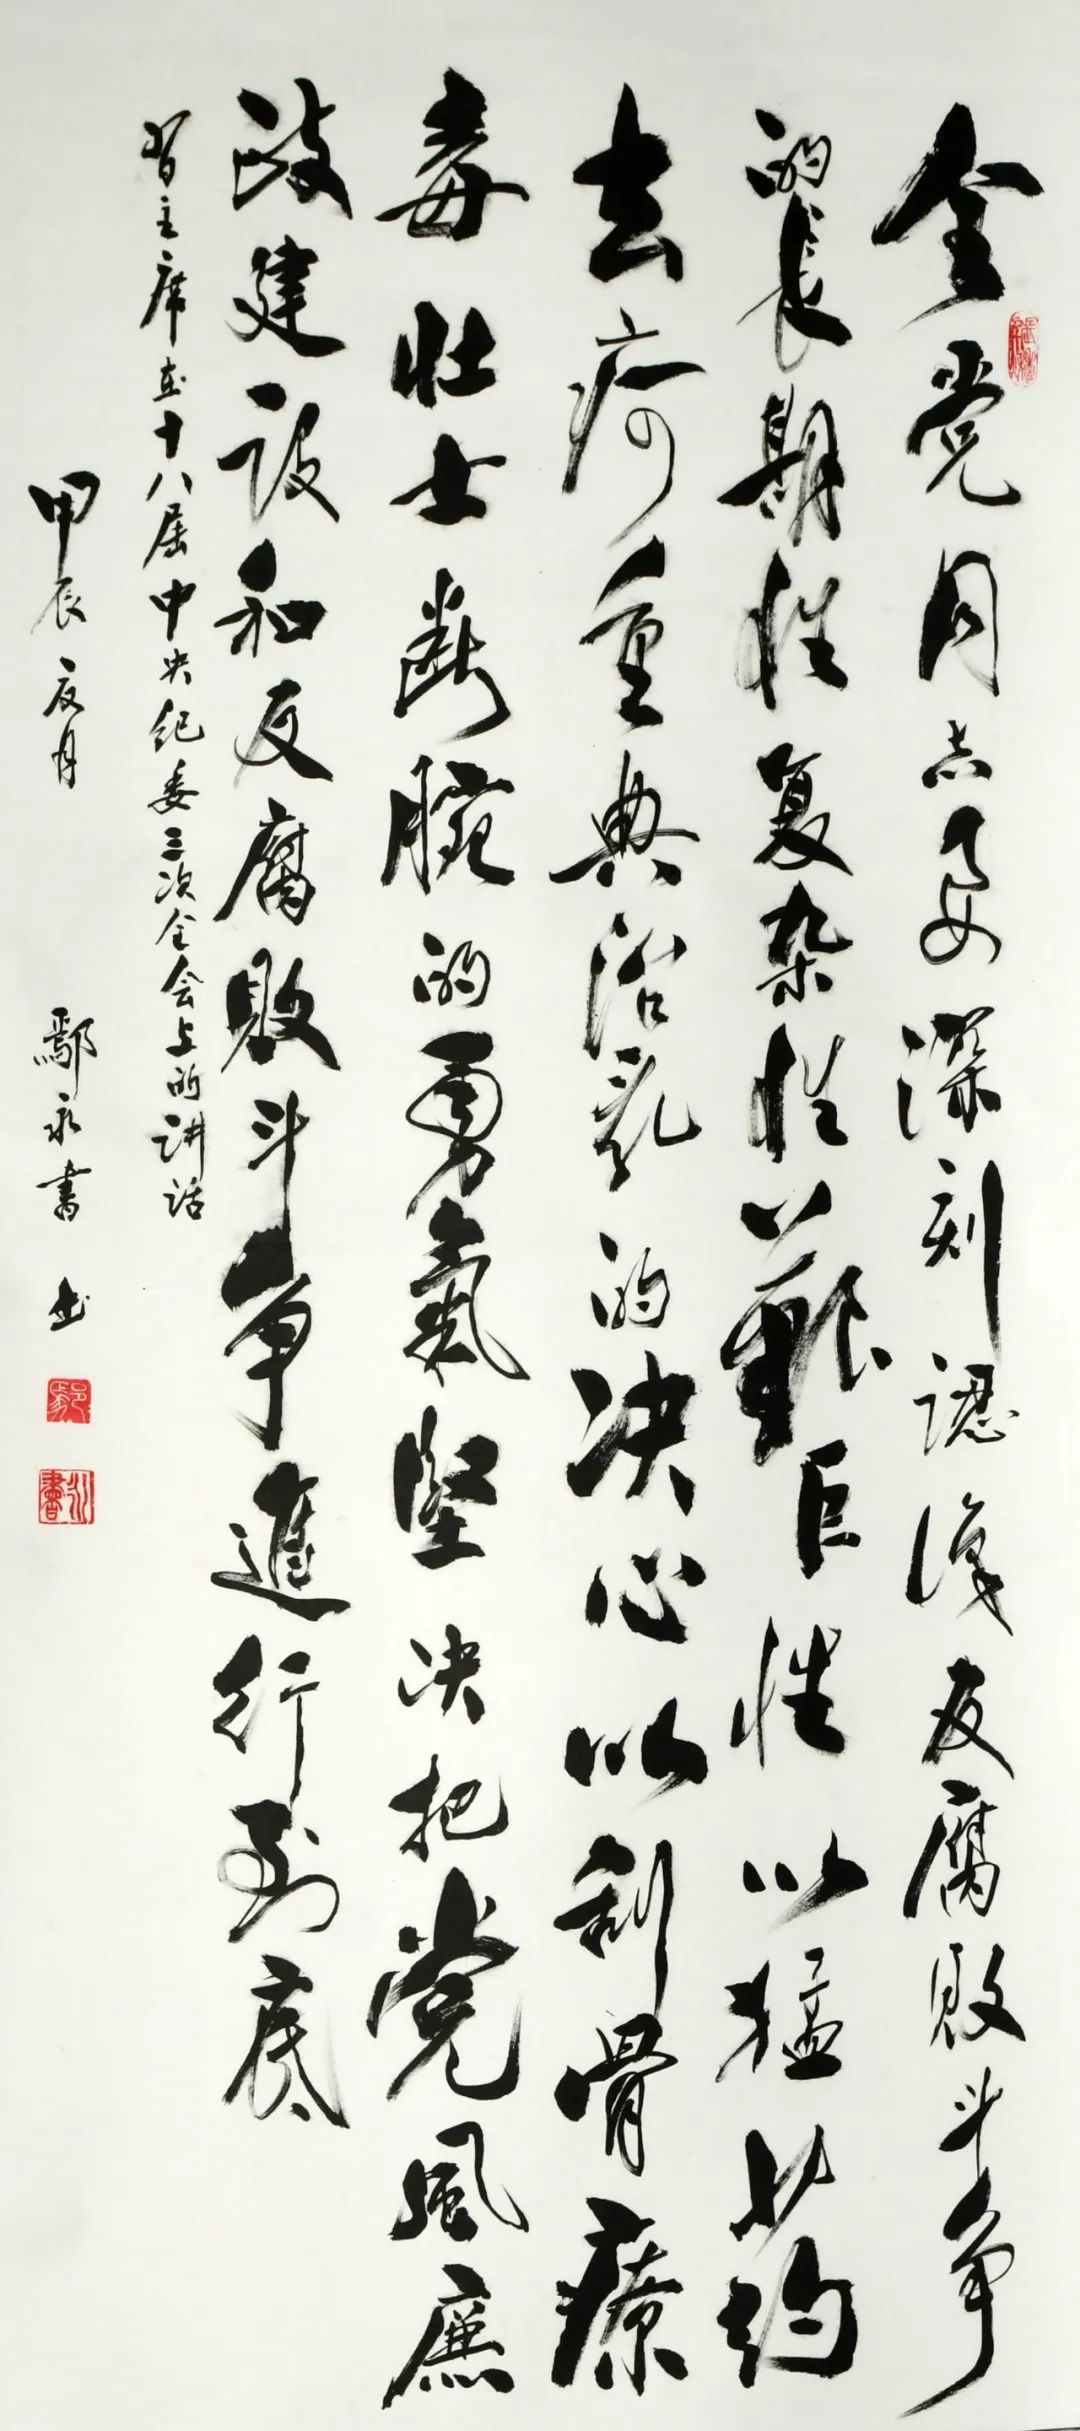 全党同志要深刻認识反腐败斗争
的長期性复杂性艱巨性以猛药
去疴重典治乱的决心以刮骨療
毒壮士断腕的勇氣堅决把党風廉
政建设和反腐败斗争進行到底
習主席在十八届中央纪委三次全会上的讲话
甲辰夏月 鄢永書 出